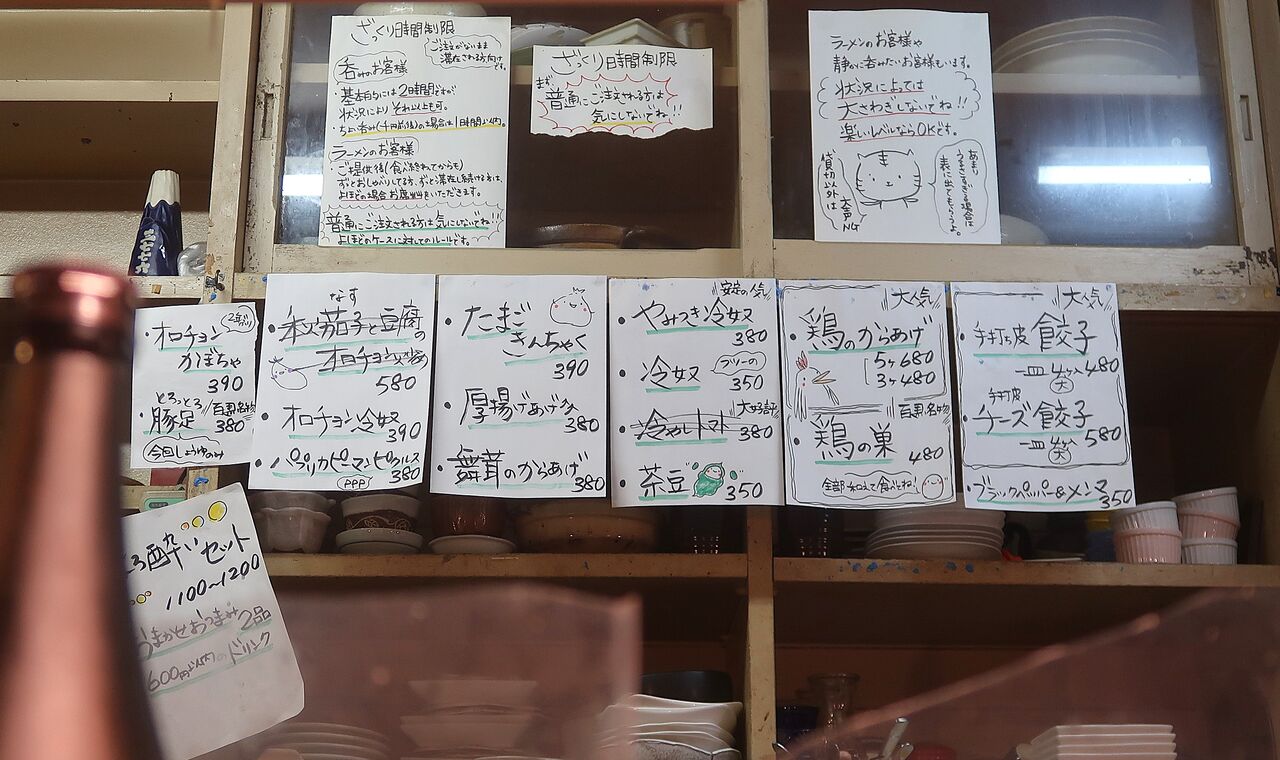 ざっくり時間制限
ご注文がないまま
滞在される方向け
です。
呑みのお客様
・基本的には2時間ですが
状況によりそれ以上も可。
・ちょい呑み(千円前後)の場合は1時間以内。
ラーメンのお客様
・ご提供後(食べ終わってからも)
ずっとおしゃべりしてる方、ずっと滞在し続ける方は、
よほどの場合お席料をいただきます。
普通にご注文される方は気にしないでね!!
よほどのケースに対してのルールです。
ざっくり日時間制限
まず、
普通にご注文される方は
気にしないでね!!
ラーメンのお客様や
静かに呑みたいお客様もいます。
状況に上っては
大さわぎしないでね!!
楽しいレベルならOKです。
貸切以外は
大声NG
あまり
うるさすぎる場合は
表に出てもらうよ。
・オロチョン
かぼちゃ
390
とろとろ
・豚足
百里名物
380
今回しょうゆのみ
なす
・米茄子と豆腐の
オロチョン炒め
580
・オロチョン冷奴
390
・パプリカピーマンピクルス
PPP
380
・たまご
きんちゃく
390
・厚揚げあげ
380
・舞茸のからあげ
380
安定の人気
・やみつき冷奴
380
・冷奴
フリーの
350
大好評
・冷やしトマト
380
・茶豆
350
大人気
・鶏のからあげ
5ヶ680
3ヶ480
百里名物
・鶏の巣
480
全部和えて食べてね!
大人気
・手打ち皮 餃子
一皿4ヶ480
手打皮
・チーズ餃子
一皿 580
・ブラックペッパー&メンマ
350
ろ酔いセット
1100〜1200
おまかせおつまみ2品
600円以内のドリンク